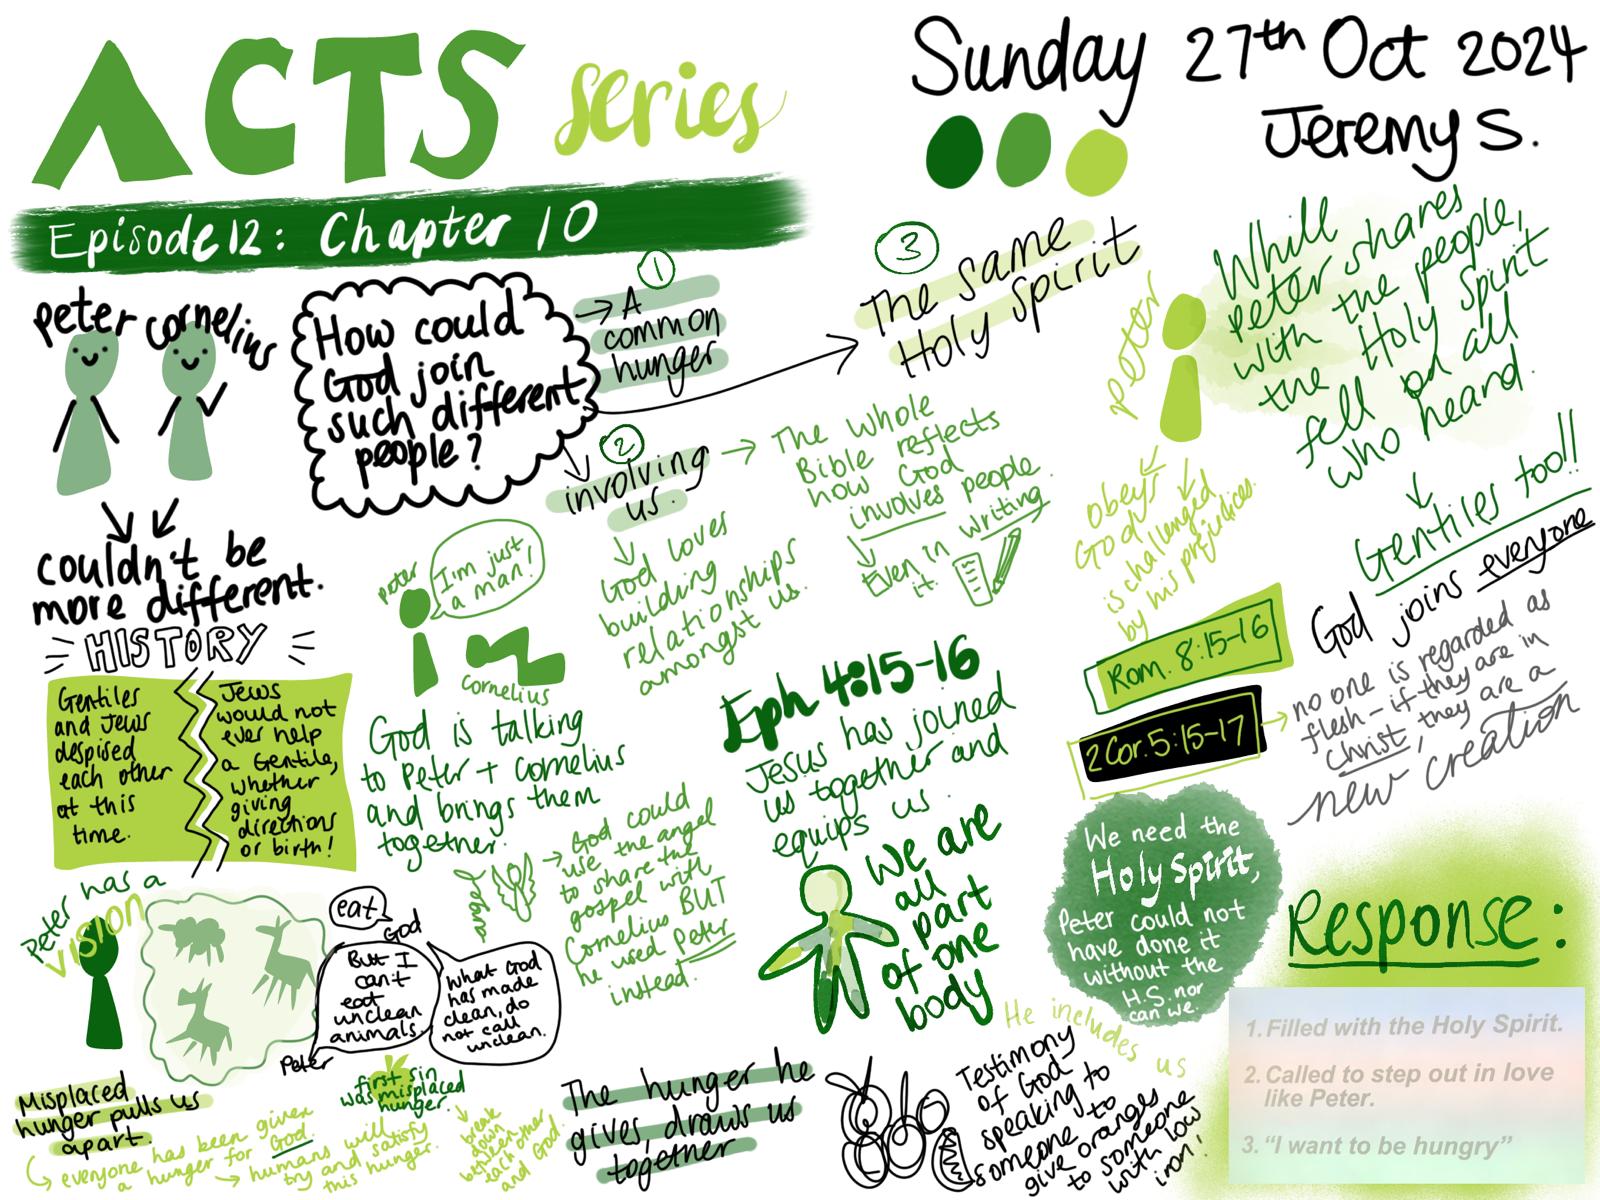 ACTS series
Sunday 27th Oct 2024
Jeremy S.
Episode 12: Chapter 10
Peter
Cornelius
couldn't be
more different.
How could
God join
such different
people?
1
→ A
common
hunger
2
involving
us.
3
The same
Holy Spirit
HISTORY
Gentiles
and Jews
despised
each other
at this
time.
Jews
would not
ever help
a Gentile,
whether
giving
directions
or birth!
Peter
I'm just
a man!
Cornelius
God is talking
to Peter + Cornelius
and brings them
together.
God loves
building
relationships
amongst us.
→ The whole
Bible reflects
how God
involves people.
Even in writing
it.
→ God could
use the angel
to share the
gospel with
Cornelius BUT
he used Peter
instead.
Eph 4:15-16
Jesus has joined
us together and
equips us.
We are
all
part
of one
body
Peter has a
vision
eat
God
But I
can't
eat
unclean
animals.
Peter
What God
has made
clean, do
not call
unclean.
Misplaced
hunger pulls us
apart.
everyone has been given
a hunger for God.
→ humans will
try and satisfy
this hunger.
first sin
was misplaced
hunger
break
down
between
each other
and God.
The hunger he
gives, draws us
together
peter
Whill
peter shares
with the people,
the Holy Spirit
fell on all
who heard.
Gentiles too!!
obeys
God
is challenged
by his prejudices.
Rom. 8:15-16
2 Cor. 5:15-17
God joins everyone
no one is regarded as
flesh - if they are in
Christ, they are a
new creation
We need the
Holy Spirit,
Peter could not
have done it
without the
H.S. nor
can we.
He includes us
Testimony
of God
speaking to
someone to
give oranges
to someone
with low
iron!
Response:
1. Filled with the Holy Spirit.
2. Called to step out in love
like Peter.
3. “I want to be hungry”